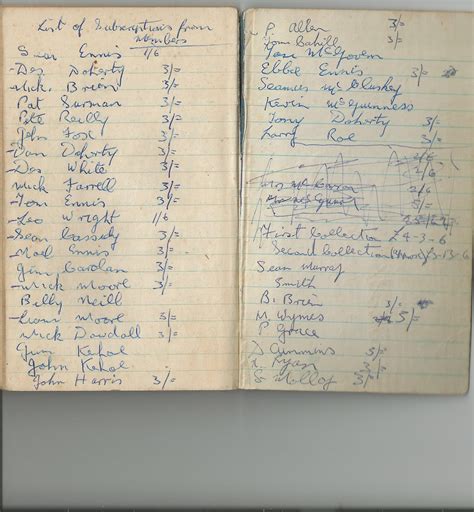 List of Subscriptions from
Members
Sean Ennis 1/6
- Des Doherty 3/=
- Mick. Brien 3/=
Pat Surman 3/=
Pete Reilly 3/=
John Fox 3/=
- Dan Doherty 3/=
- Des White 3/=
Mick Farrell 3/=
- Tom Ennis 3/=
- Leo Wright 1/6
- Sean Cassidy 3/=
- Noel Ennis 3/=
Jim Carolan 3/=
- Mick Moore 3/=
Billy Neill
- Liam Moore 3/=
Mick Dowdall 3/=
Kehoe
John Kehoe
John Harris 3/=
P. Allen 3/=
Tom Cahill 3/=
McGovern
Ebbie Ennis 3/=
Seamus McCluskey
Kevin McGuinness
Tony Doherty 3/=
Larry Roe 3/=
2/6
2/6
2/6
5/=
First Collection £4-3-6
Second Collection
Sean Murray
Smith
B. Brien 3/=
M. Wymes 5/=
P Grace
D Cummins 5/=
Ryan 3/=
S Molloy 3/=